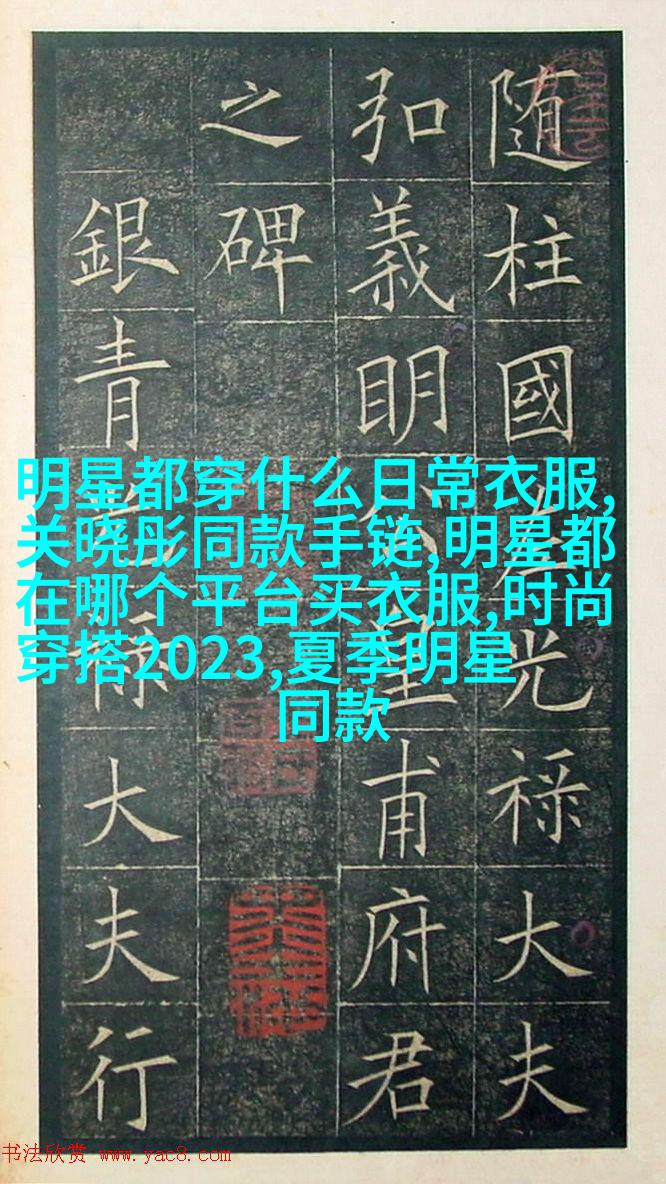 随柱國左光祿大夫
弘義明公皇甫府君
之碑
銀青光祿大夫行
明星都穿什么日常衣服,
关晓彤同款手链,明星都
在哪个平台买衣服,时尚
穿搭2023,夏季明星
同款
书法欣赏 www.yac8.com